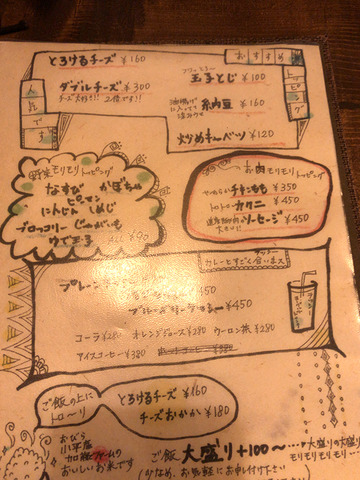 おすすめ
トッピング
とろけるチーズ ¥160
ダブルチーズ ¥300
チーズ大好き!! 2倍です!!
玉子とじ ¥100
納豆 ¥160
炒めキャベツ ¥120
野菜モリモリトッピング
なすび かぼちゃ
ピーマン
にんじん しめじ
ブロッコリー じゃがいも
ゆで玉子
お肉モリモリトッピング
チキンもも ¥350
カルニ ¥450
ソーセージ ¥450
ラッシー
カレーとすごく合います
プレーン
¥450
ブルーベリーラッシー ¥450
コーラ ¥280 オレンジジュース ¥280 ウーロン茶 ¥280
アイスコーヒー ¥380
ご飯の上に
トロ〜リ
とろけるチーズ ¥160
チーズおかか ¥180
おぴら
小平産
おいしいお米です
ご飯 大盛り +100〜…
大盛りの大盛り
モリモリモリ…
少なめ、お気軽にお申し付け下さい